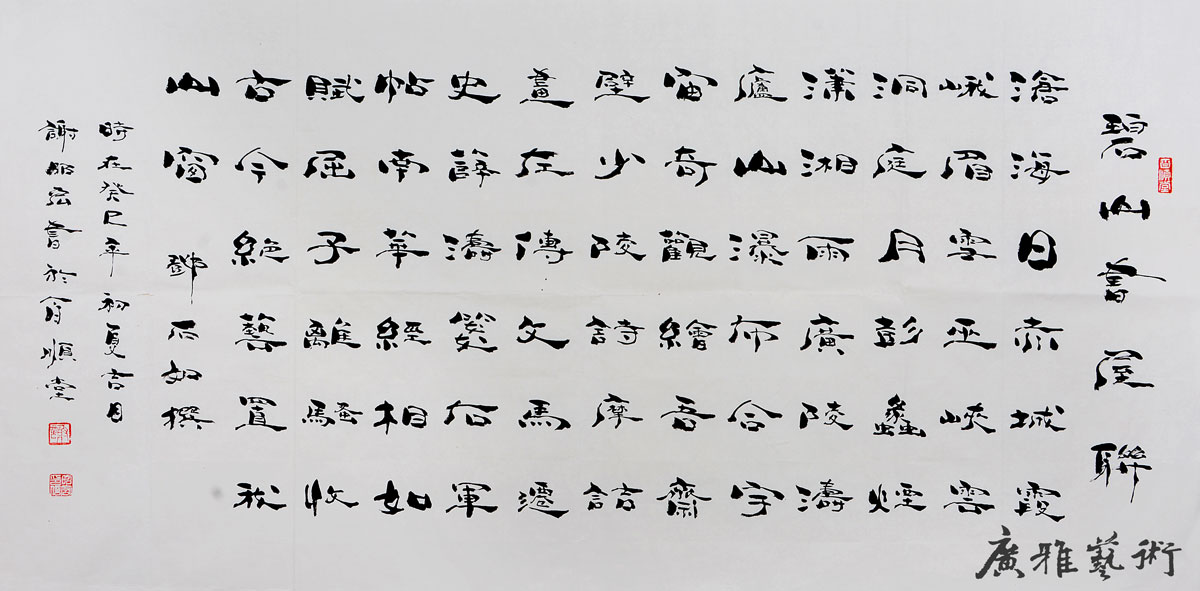 碧山書屋聯
滄海日赤城霞
峨眉雪巫峽雲
洞庭月彭蠡煙
瀟湘雨廣陵濤
廬山瀑布合宇
宙奇觀繪吾齋
壁少陵詩摩詰
畫左傳文馬遷
史薛濤箋右軍
帖南華經相如
賦屈子離騷收
古今絕藝置我
山窗 鄧石如撰
時在癸巳年初夏吉日
謝書於順堂
廣雅藝術